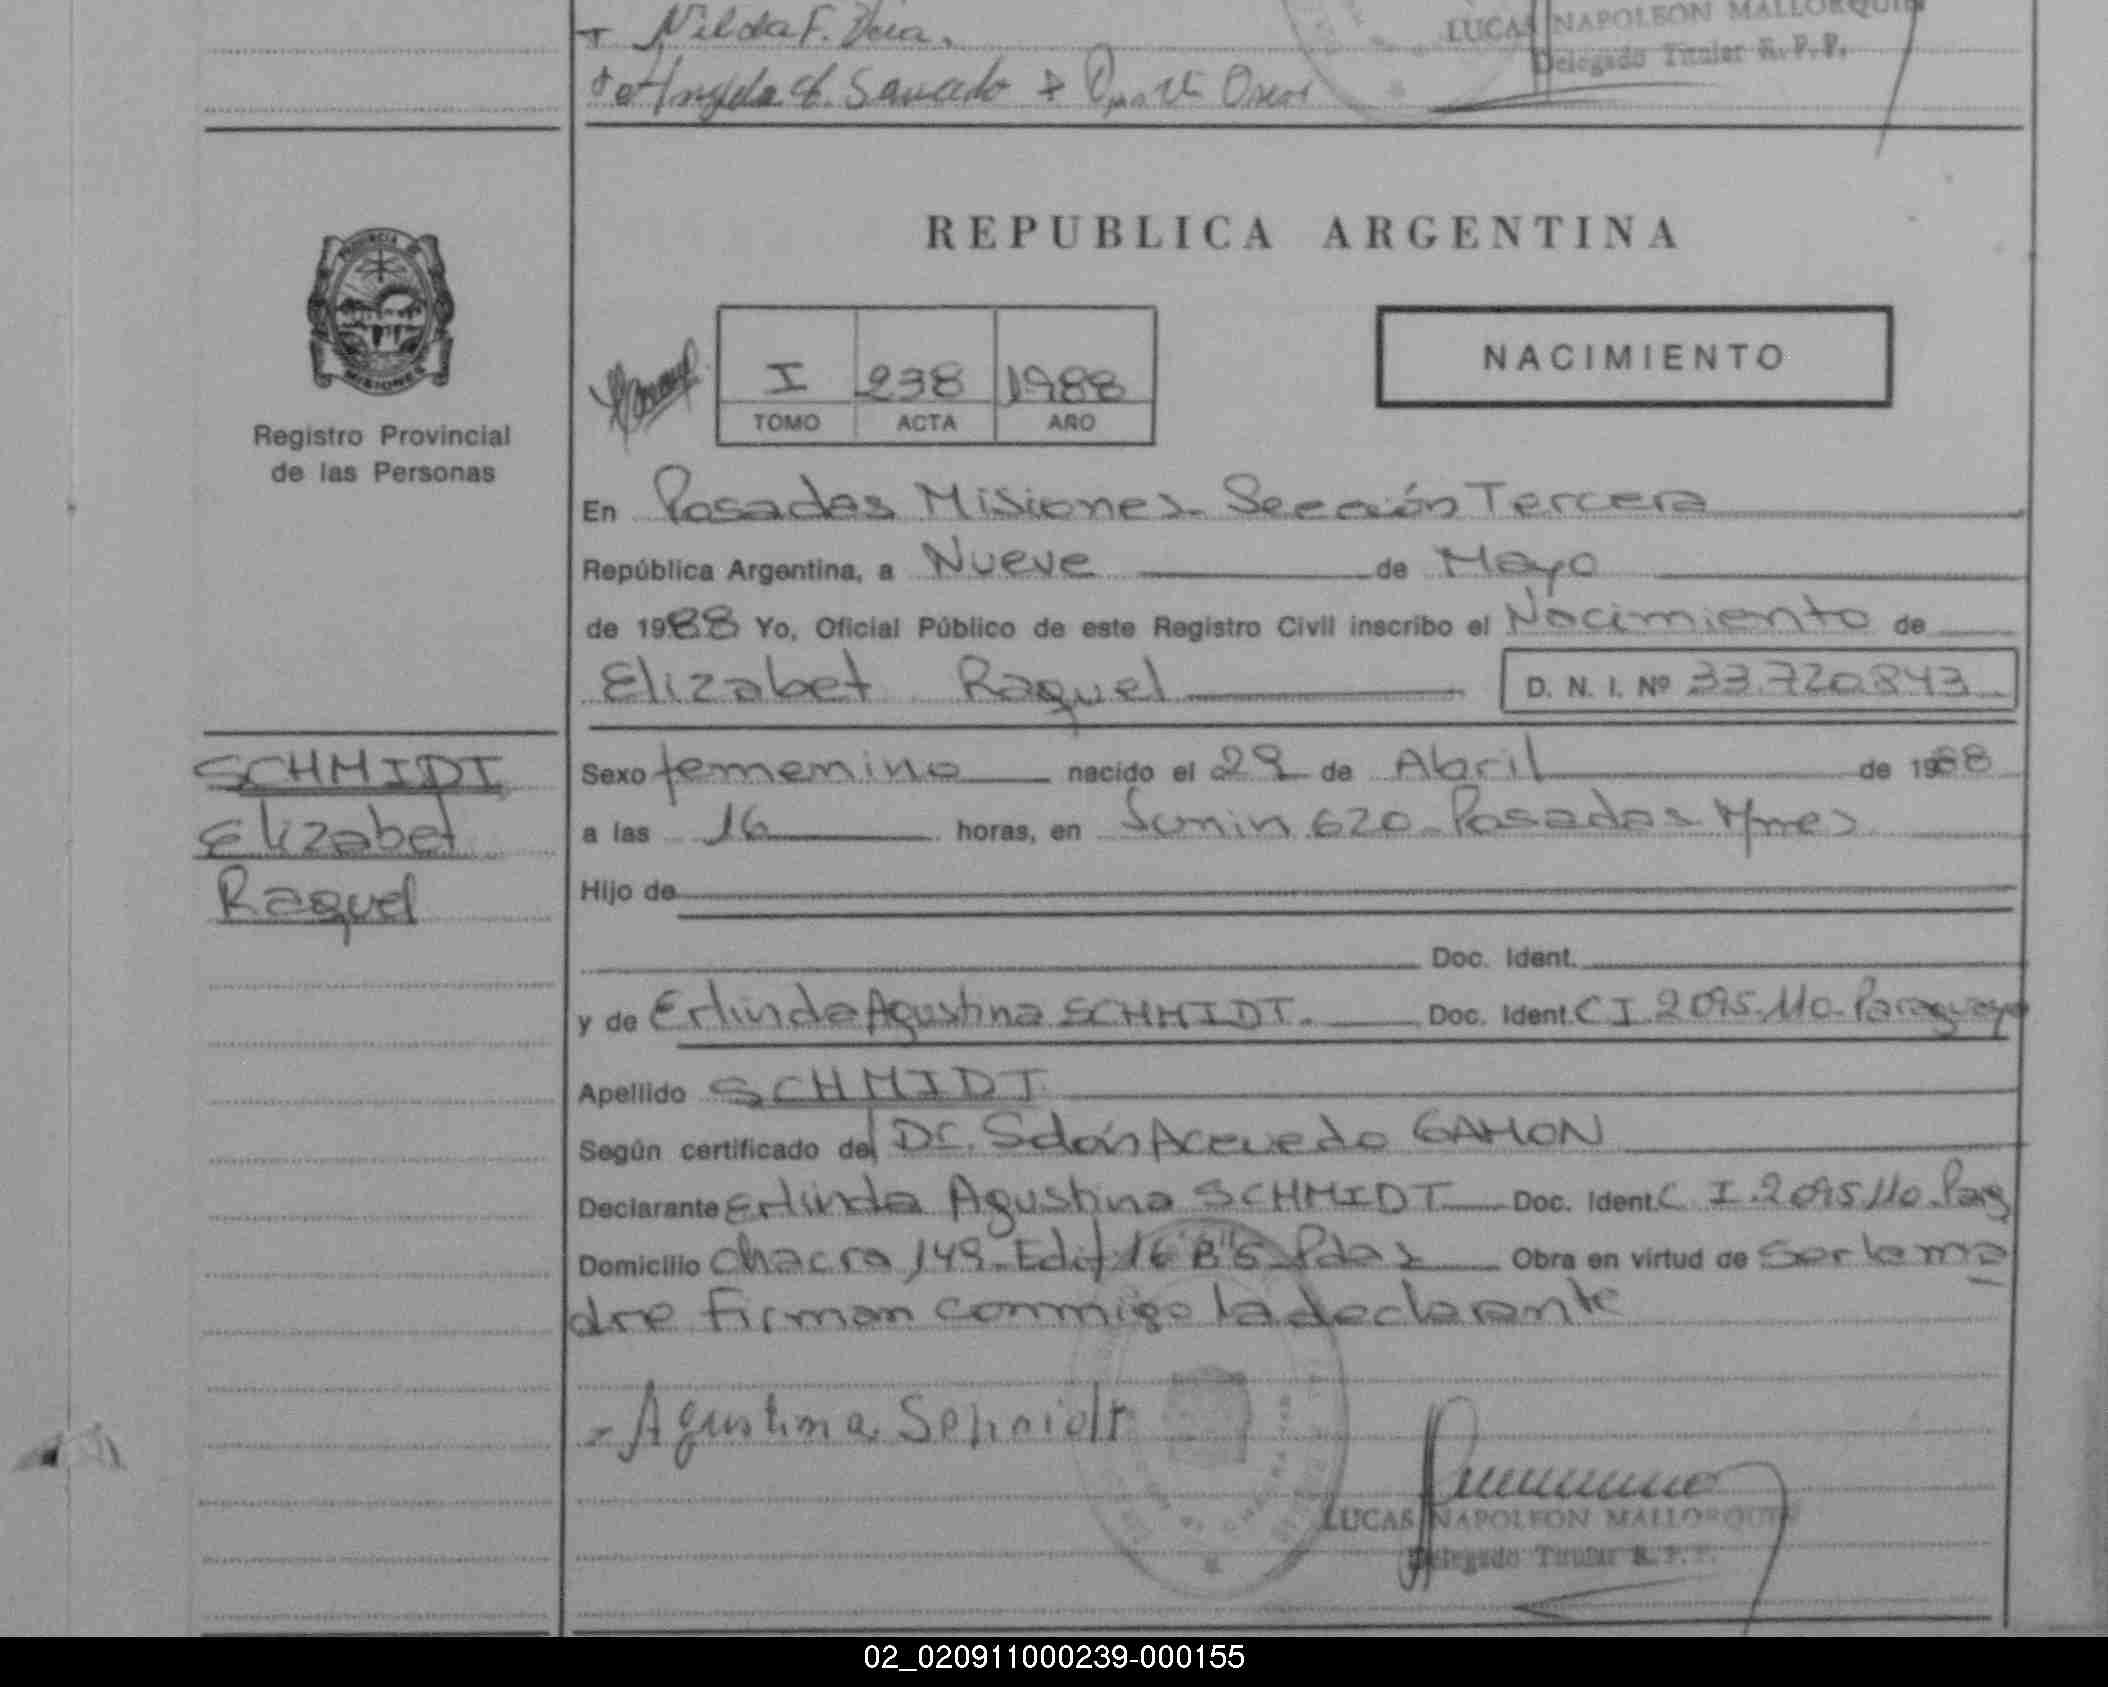 Nilda F.
LUCAS NAPOLEON MALLORQUIN
Delegado Titular R.P.P.
REPUBLICA ARGENTINA
PROVINCIA
MISIONES
Registro Provincial
de las Personas
I 238 1988
TOMO ACTA AÑO
NACIMIENTO
En Posadas Misiones. Sección Tercera
República Argentina, a Nueve de Mayo
de 1988 Yo, Oficial Público de este Registro Civil inscribo el Nacimiento de
Elizabet Raquel D. N. I. Nº 33.720.843
SCHMIDT
Elizabet
Raquel
Sexo femenino nacido el 29 de Abril de 1988
a las 16 horas, en Junin 620 Posadas Mnes
Hijo de
Doc. Ident.
y de Erlinda Agustina SCHMIDT. Doc. Ident. C I 2095.110. Paraguaya
Apellido SCHMIDT
Según certificado del Dr. Solón Acevedo GAMON
Declarante Erlinda Agustina SCHMIDT Doc. Ident. C I. 2095110. Parg
Domicilio chacra 149. Edif 16 "B" 6 Pdas Obra en virtud de ser la ma
dre Firman conmigo la declarante
- Agustina Schmidt
LUCAS NAPOLEON MALLORQUIN
Delegado Titular R.P.P.
02_020911000239-000155